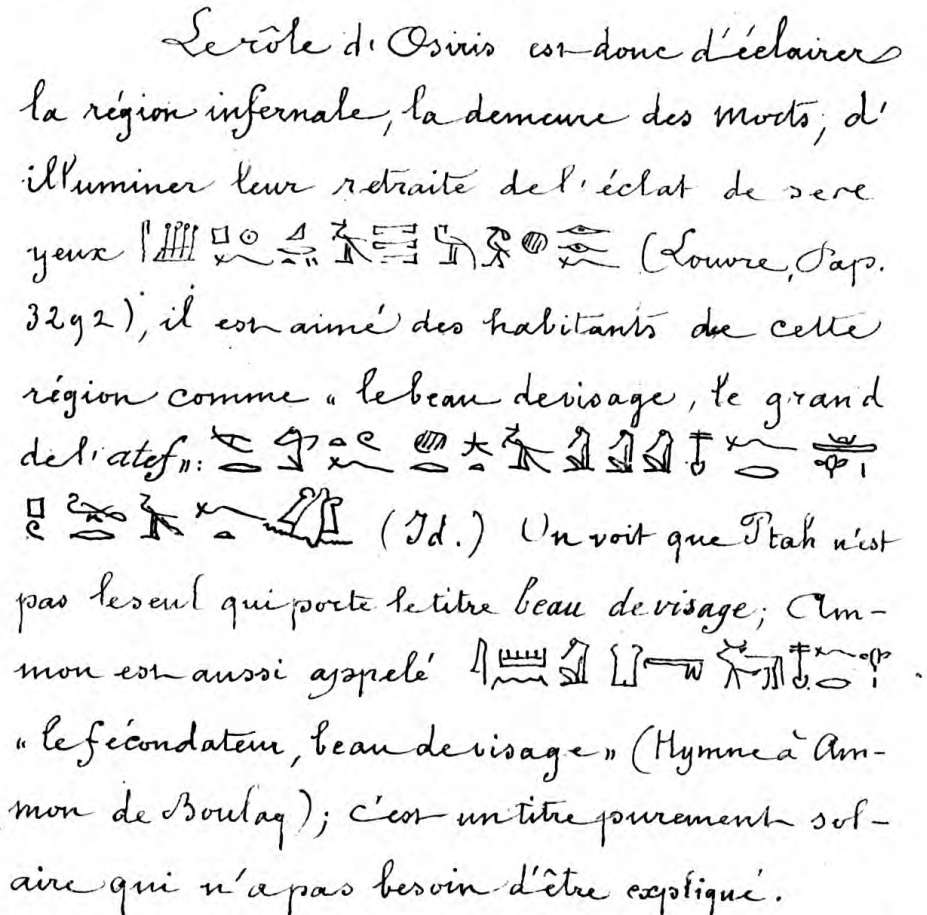 Le rôle d'Osiris est donc d'éclairer
la région infernale, la demeure des morts, d'
illuminer leur retraite de l'éclat de
yeux (Louvre, Pap.
3292), il est aimé des habitants de cette
région comme « le beau de visage, le grand
de l'atef »:
(Id.) On voit que Ptah n'est
pas le seul qui porte le titre beau de visage; Am-
mon est aussi appelé
« le fécondateur, beau de visage » (Hymne à Am-
mon de Boulaq); c'est un titre purement sol-
aire qui n'a pas besoin d'être expliqué.